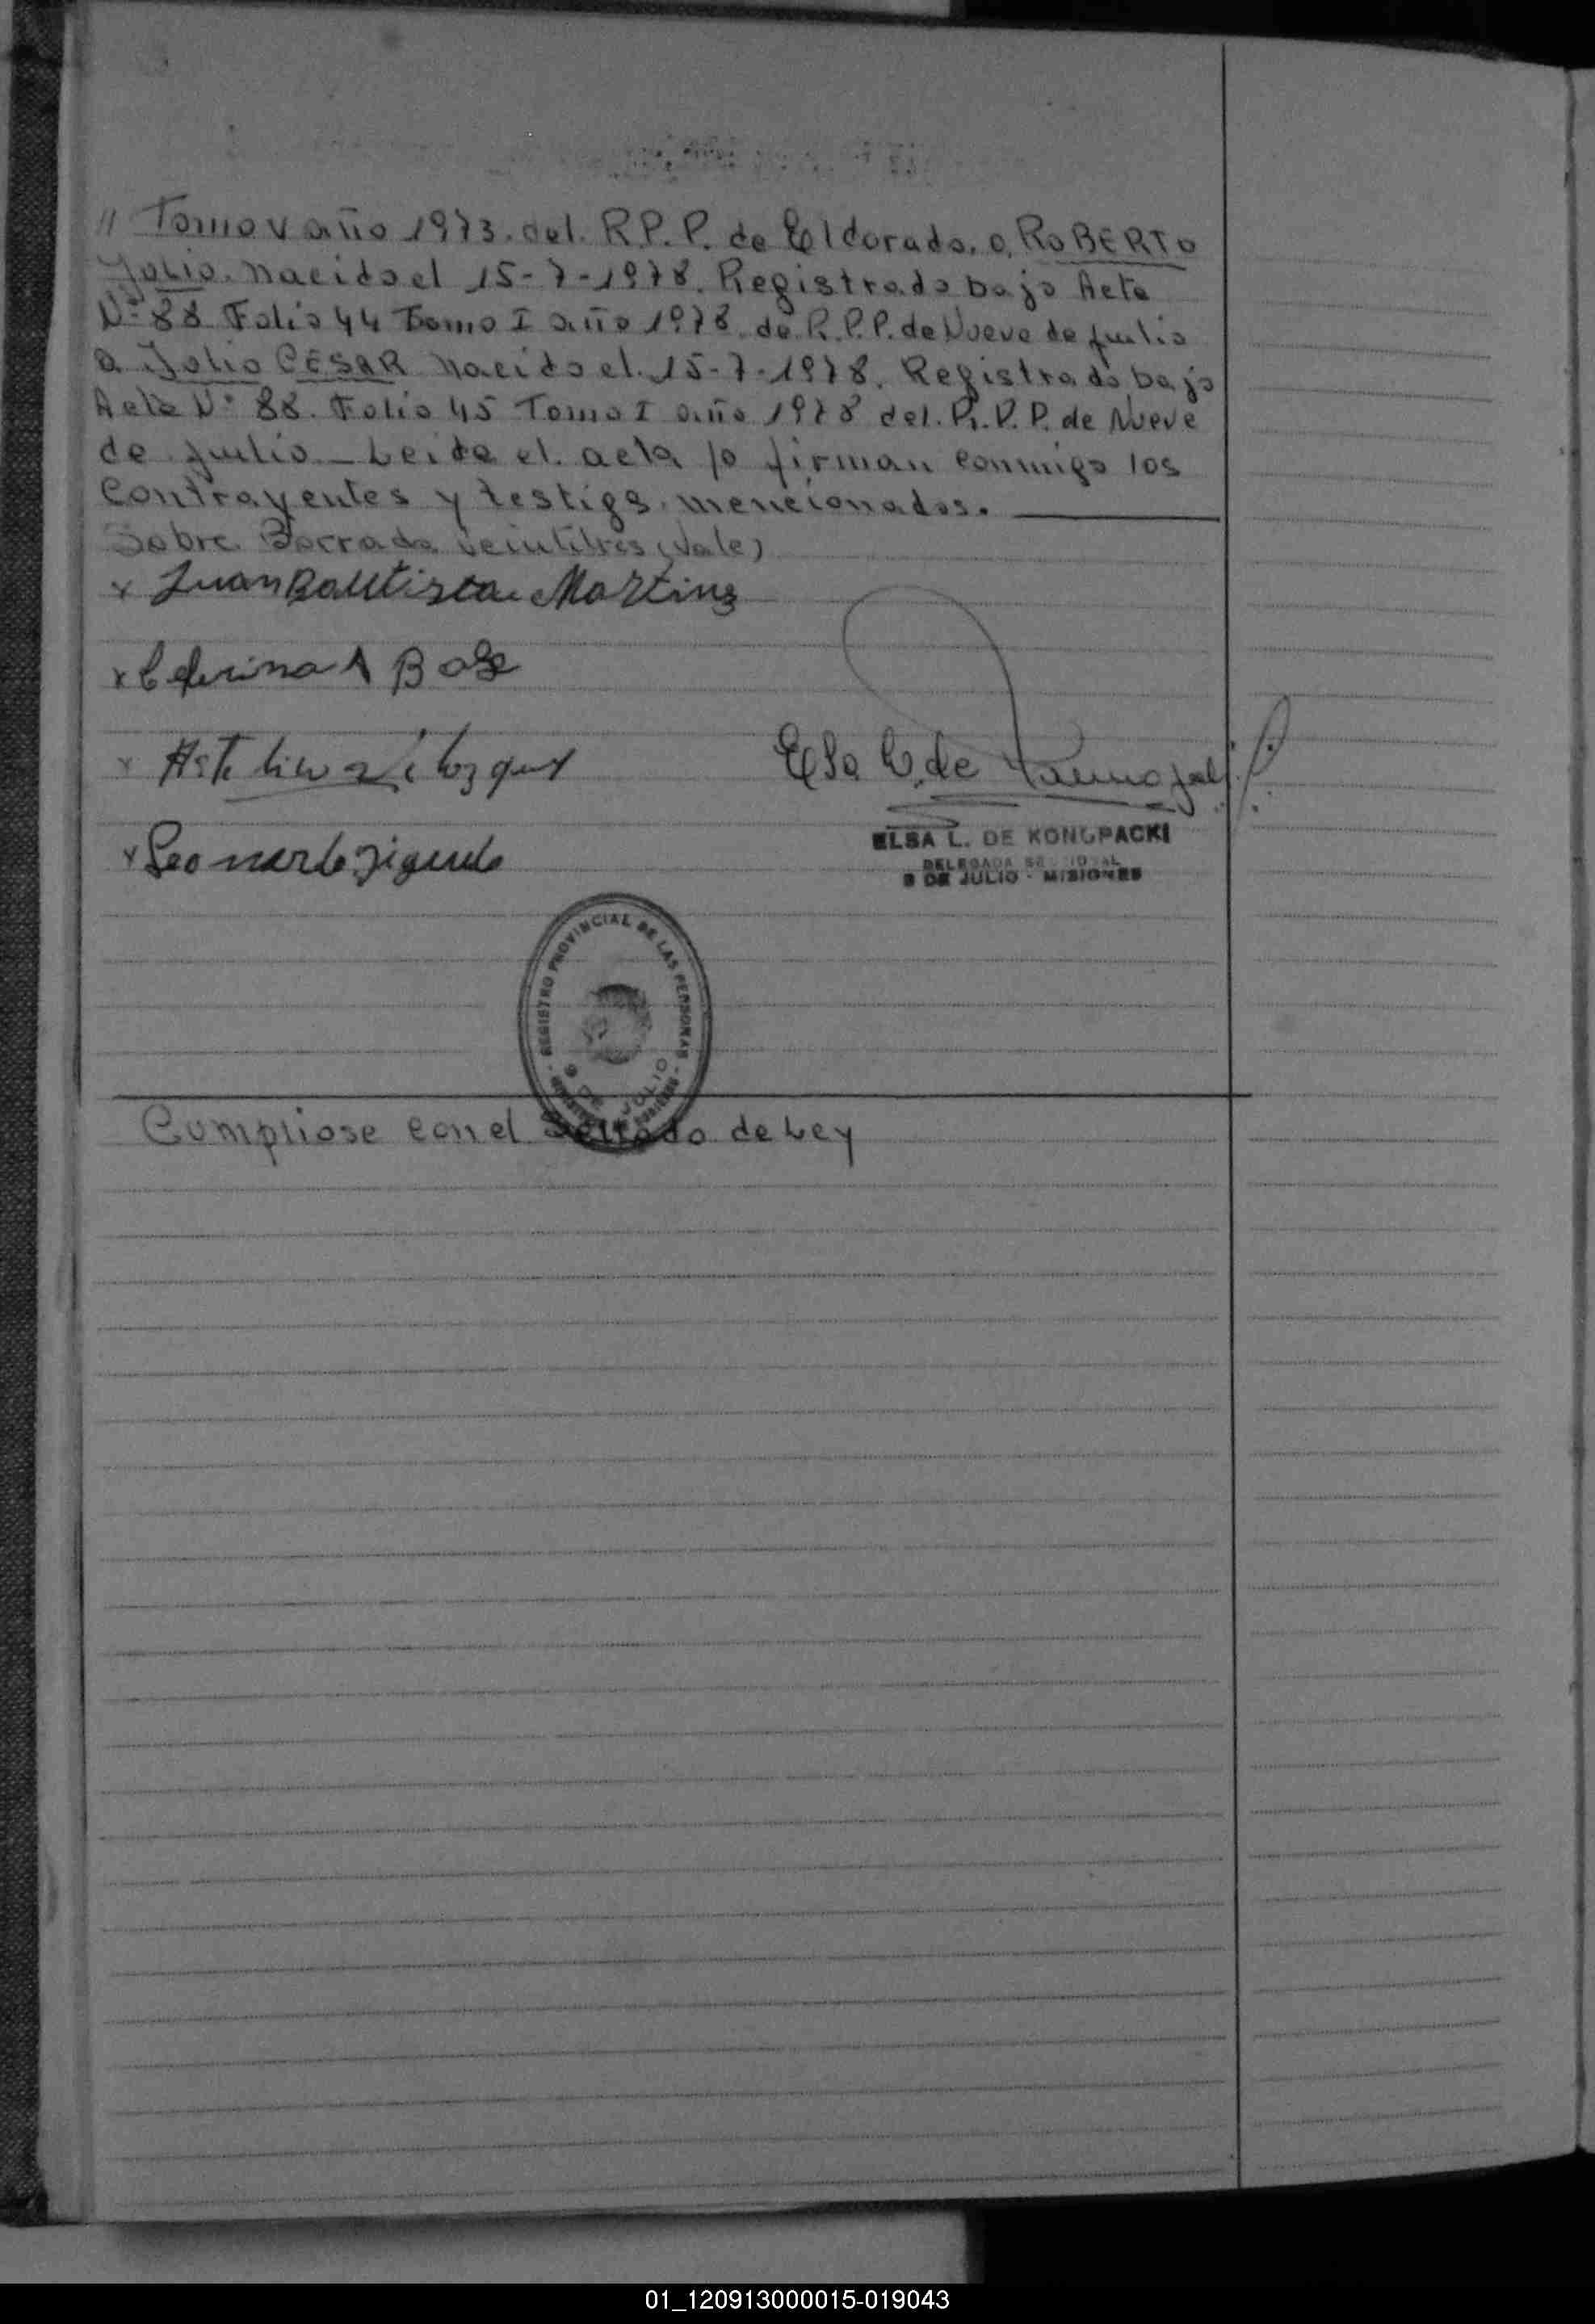 // Tomo V año 1973. del. R.P.P. de Eldorado. a, ROBERTO
Julio. nacido el 15-7-1978. Registrado bajo Acta
Nº 88 Folio 44 Tomo I año 1978. de R.P.P. de Nueve de Julio
a Julio CESAR nacido el. 15-7-1978. Registrado bajo
Acta Nº 88. Folio 45 Tomo I año 1978 del. R.P.P. de Nueve
de Julio_ Leida el. acta lo firman conmigo los
Contrayentes y testigs. mencionados.
Sobre Borrado veintitres (Vale)
x Juan Bautista Martinz
x Ceferina A
x
x Leonardo
Elsa L. de
ELSA L. DE KONOPACKI
DELEGADA SECCIONAL
9 DE JULIO - MISIONES
REGISTRO PROVINCIAL DE LAS PERSONAS
9 DE JULIO
Cumpliose con el Sellado de Ley
01_120913000015-019043